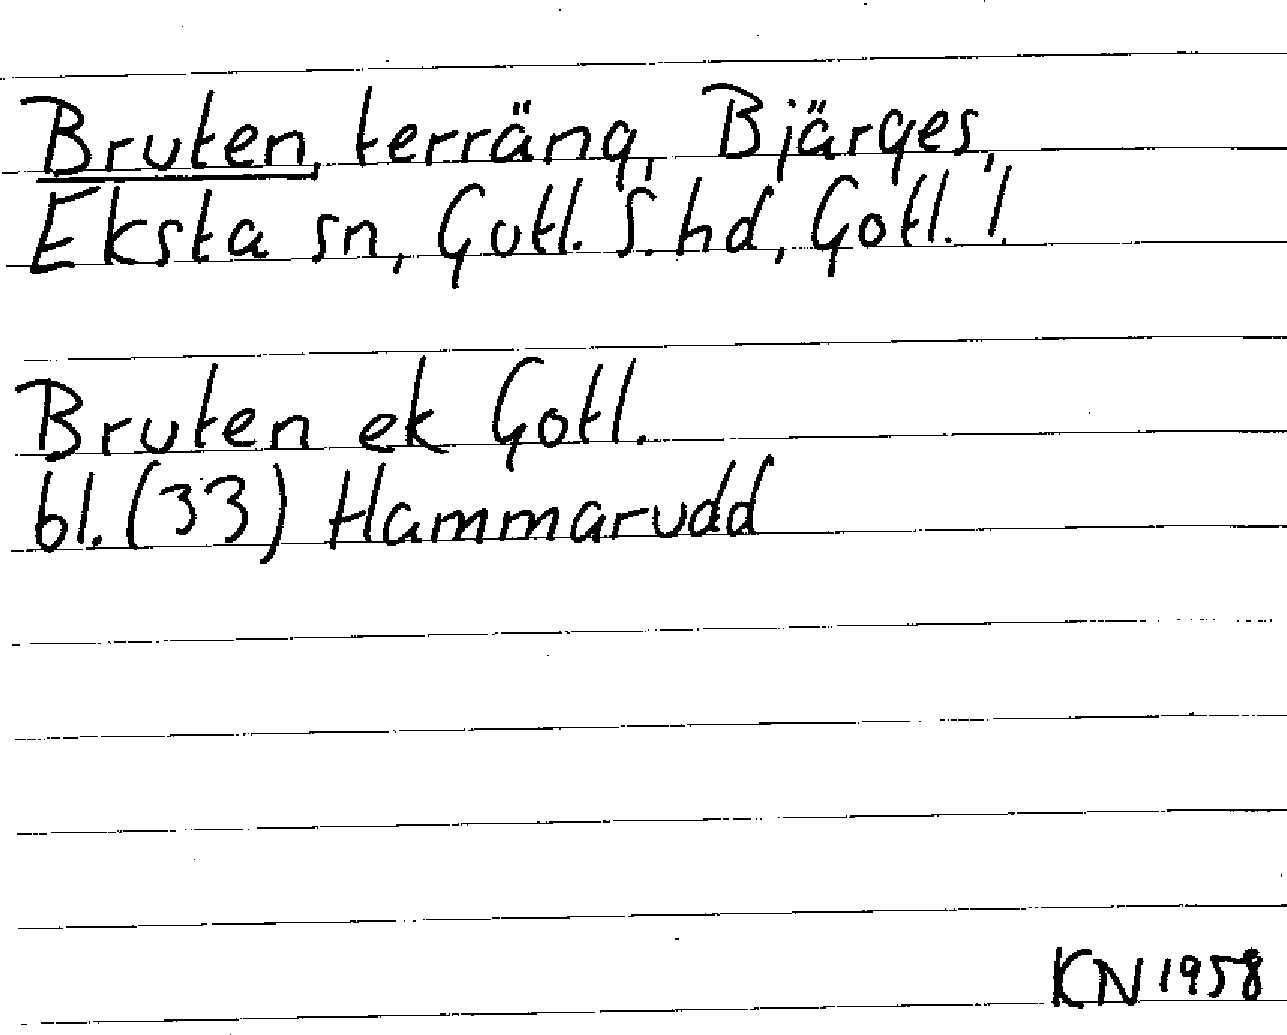 Bruten, terräng, Bjärges,
Eksta sn, Gotl. S. hd, Gotl. l.
Bruten ek Gotl.
bl. (33) Hammarudd
KN 1958